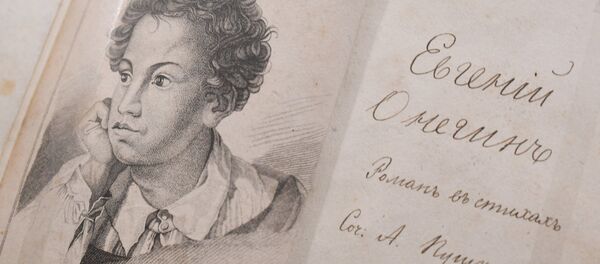 Евгеній
Онегинъ
Романъ въ стихахъ
Соч: А. Пушк